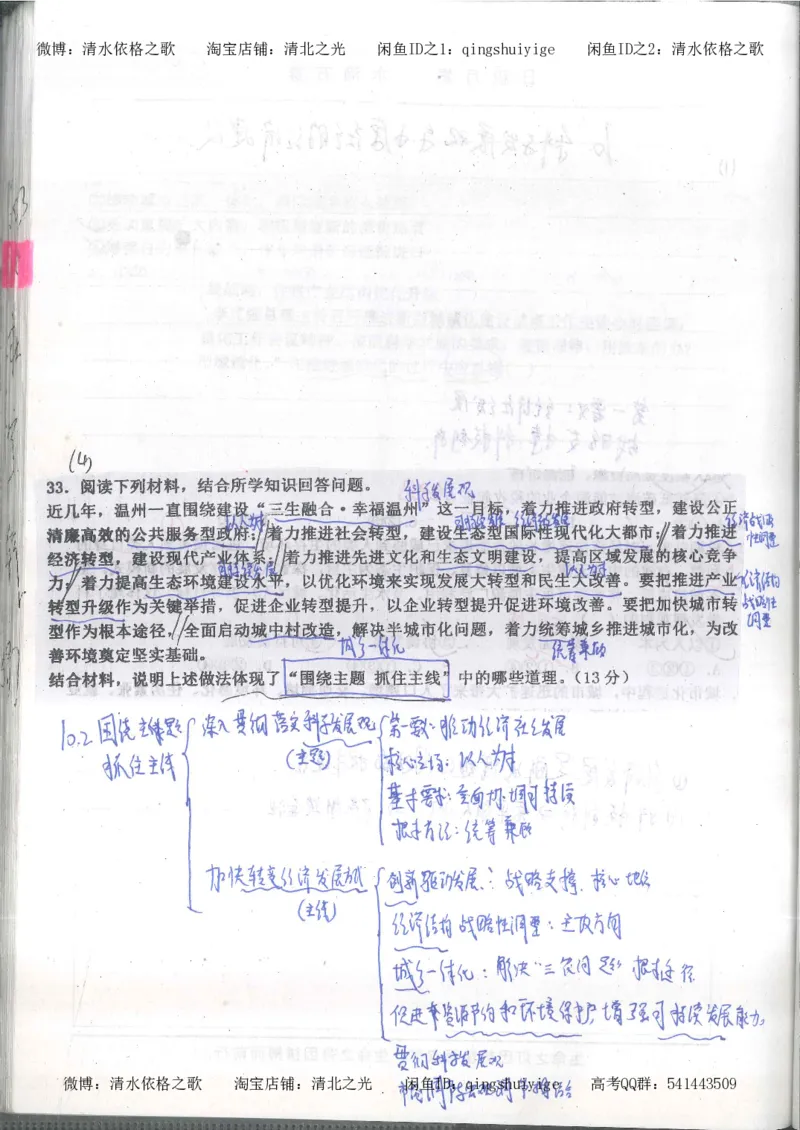 微博：清水依格之歌 淘宝店铺：清北之光 闲鱼ID之1：qingshuiyige 闲鱼ID之2：清水依格之歌
(4)
33．阅读下列材料，结合所学知识回答问题。
科学发展观
近几年，温州一直围绕建设“三生融合·幸福温州”这一目标，着力推进政府转型，建设公正
以人为本
清廉高效的公共服务型政府；着力推进社会转型，建设生态型国际性现代化大都市；着力推进
经济转型，建设现代产业体系；着力推进先进文化和生态文明建设，提高区域发展的核心竞争
以人为本
力；着力提高生态环境建设水平，以优化环境来实现发展大转型和民生大改善。要把推进产业
经济结构战略性调整
转型升级作为关键举措，促进企业转型提升，以企业转型提升促进环境改善。要把加快城市转
型作为根本途径，全面启动城中村改造，解决半城市化问题，着力统筹城乡推进城市化，为改
善环境奠定坚实基础。
城乡一体化 统筹兼顾
结合材料，说明上述做法体现了“围绕主题 抓住主线”中的哪些道理。（13 分）
10.2 围绕主题 抓住主线
深入贯彻落实科学发展观
(主题)
第一要义：推动经济社会发展
核心立场：以人为本
基本要求：全面协调可持续
根本方法：统筹兼顾
加快转变经济发展方式
(主线)
创新驱动发展：战略支撑、核心地位
经济结构战略性调整：主攻方向
城乡一体化：解决“三农问题”根本途径
促进资源节约和环境保护 增强可持续发展能力
贯彻科学发展观
微博：清水依格之歌 淘宝店铺：清北之光 闲鱼ID：qingshuiyige 高考QQ群：541443509